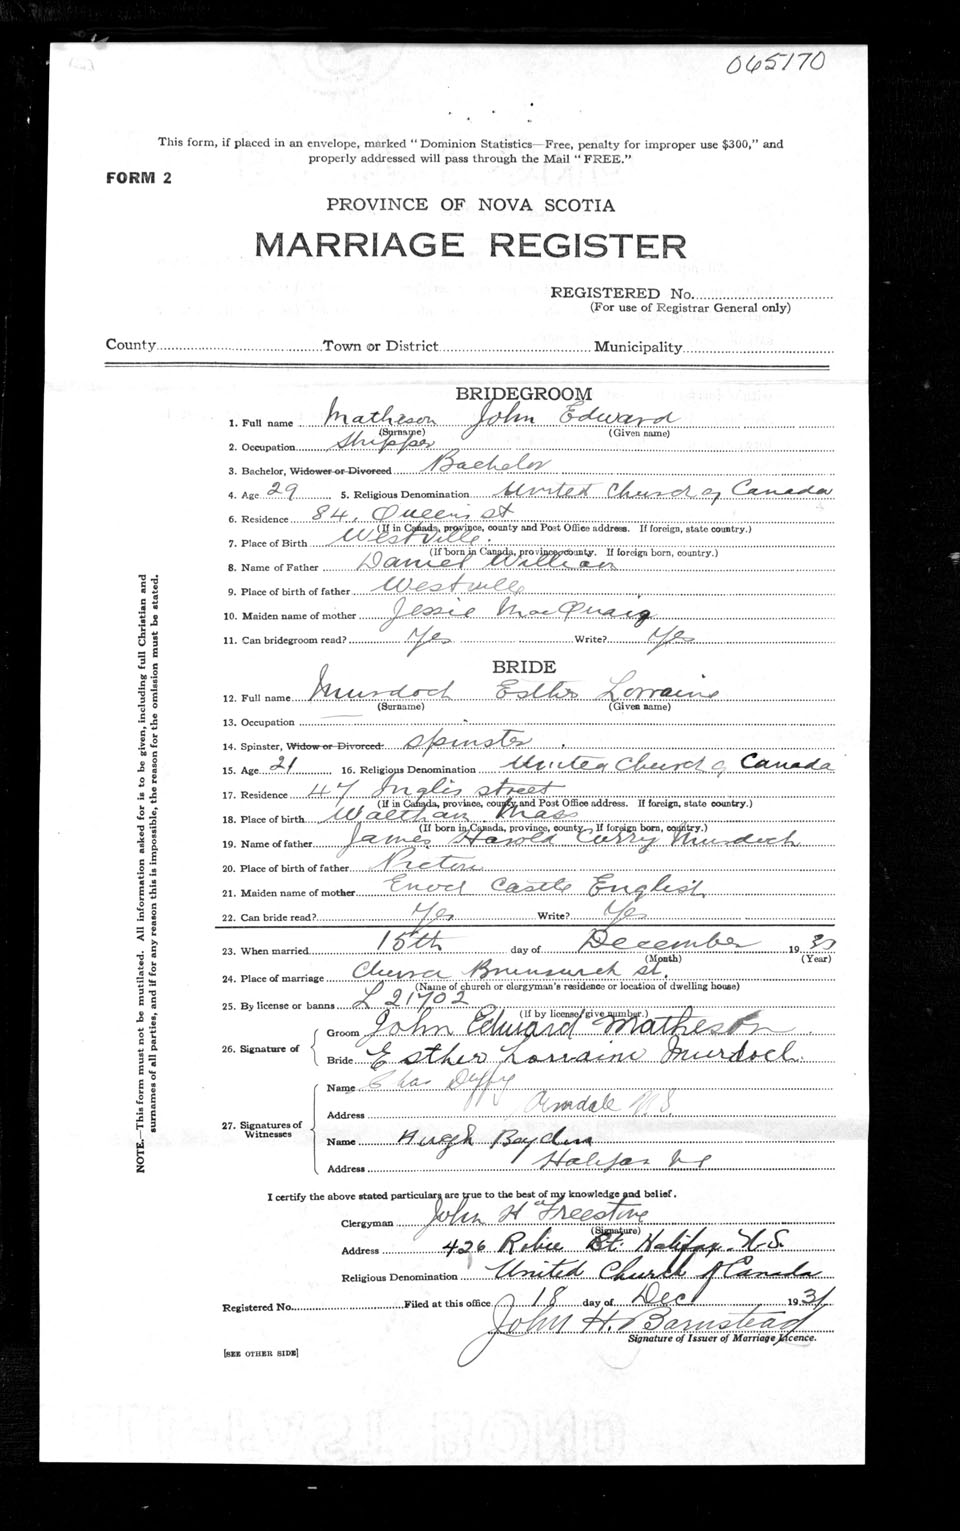 065170
This form, if placed in an envelope, marked "Dominion Statistics—Free, penalty for improper use $300," and
properly addressed will pass through the Mail "FREE."
FORM 2
PROVINCE OF NOVA SCOTIA
MARRIAGE REGISTER
REGISTERED No.
(For use of Registrar General only)
County Town or District Municipality
BRIDEGROOM
1. Full name Matheson John Edward
(Surname) (Given name)
2. Occupation Shipper
3. Bachelor, Widower or Divorced Bachelor
4. Age 29 5. Religious Denomination United Church of Canada
6. Residence 84, Queens st
(If in Canada, province, county and Post Office address. If foreign, state country.)
7. Place of Birth Westville.
(If born in Canada, province, county. If foreign born, country.)
8. Name of Father Daniel William
9. Place of birth of father Westville
10. Maiden name of mother Jessie MacQuaig
11. Can bridegroom read? Yes Write? Yes
BRIDE
12. Full name Murdoch Esther Lorraine
(Surname) (Given name)
13. Occupation —
14. Spinster, Widow or Divorced Spinster
15. Age 21 16. Religious Denomination United Church of Canada
17. Residence 47 Inglis street
(If in Canada, province, county and Post Office address. If foreign, state country.)
18. Place of birth Waltham Mass
(If born in Canada, province, county. If foreign born, country.)
19. Name of father James Harold Curry Murdoch
20. Place of birth of father Pictou
21. Maiden name of mother Castle English
22. Can bride read? Yes Write? Yes
23. When married 15th day of December 19
(Month) (Year)
24. Place of marriage Brunswick St.
(Name of church or clergyman's residence or location of dwelling house)
25. By license or banns L 21702
(If by license, give number.)
26. Signature of
Groom John Edward Matheson
Bride Esther Lorraine Murdoch.
27. Signatures of Witnesses
Name Chas Duffy
Address Armdale N.S.
Name Hugh
Address Halifax NS
I certify the above stated particulars are true to the best of my knowledge and belief.
Clergyman John H Freestone
(Signature)
Address 426 Robie St. Halifax. N.S.
Religious Denomination United Church of Canada
Registered No. Filed at this office 18 day of Dec 1931
John H. Barnstead
Signature of Issuer of Marriage Licence.
[SEE OTHER SIDE]
NOTE.—This form must not be mutilated. All information asked for is to be given, including full Christian and
surnames of all parties, and if for any reason this is impossible, the reason for the omission must be stated.